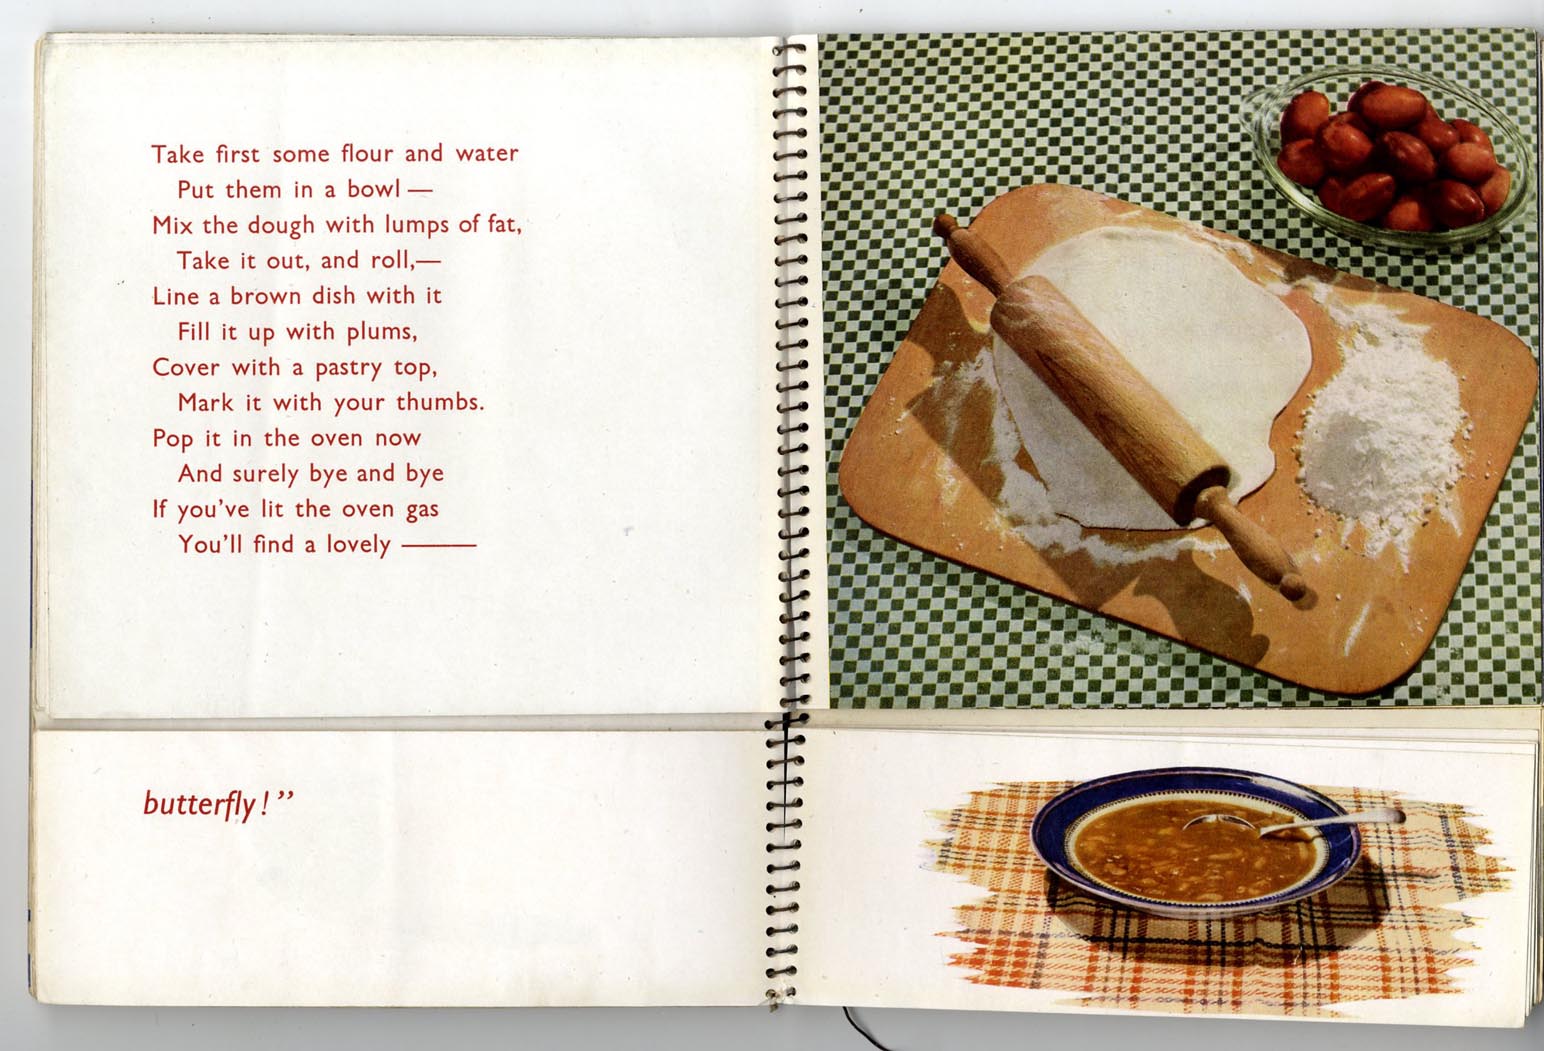 Take first some flour and water
Put them in a bowl —
Mix the dough with lumps of fat,
Take it out, and roll,—
Line a brown dish with it
Fill it up with plums,
Cover with a pastry top,
Mark it with your thumbs.
Pop it in the oven now
And surely bye and bye
If you've lit the oven gas
You'll find a lovely ———
butterfly!”